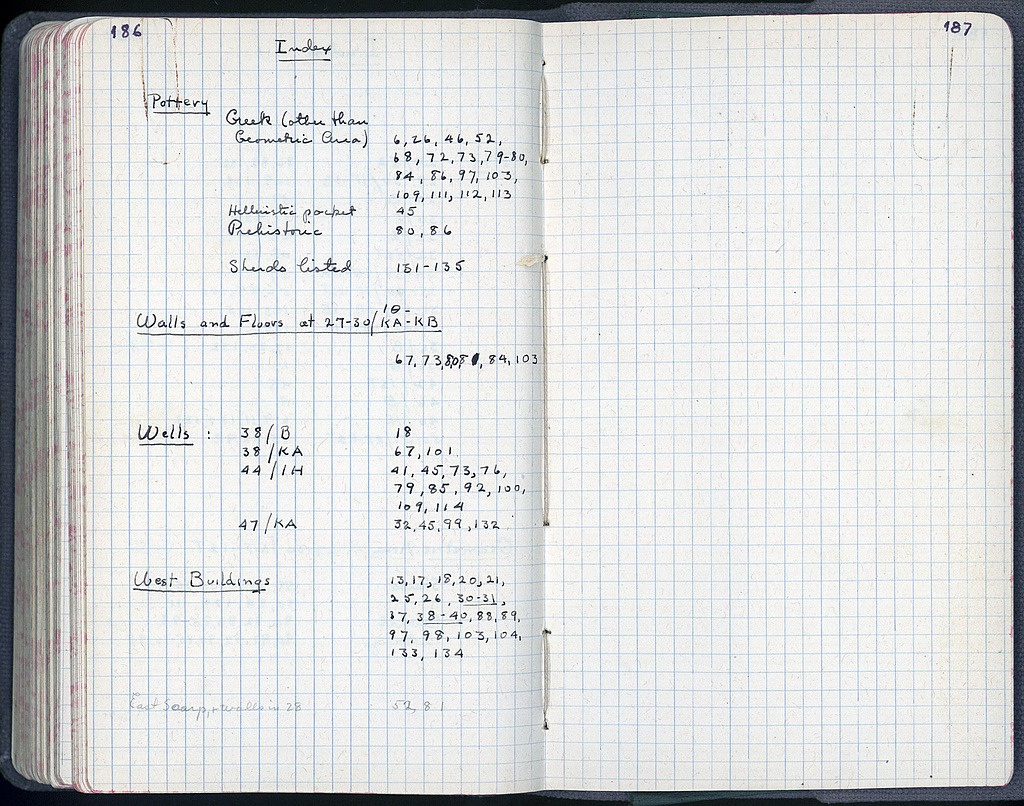 186
Index
Pottery
Greek (other than
Geometric Area) 6, 26, 46, 52,
68, 72, 73, 79-80,
84, 86, 97, 103,
109, 111, 112, 113
Hellenistic pocket 45
Prehistoric 80, 86
Sherds listed 131-135
Walls and Floors at 27-30/18-KA-KB
67, 73, 84, 103
Wells : 38/B 18
38/KA 67, 101
44/IH 41, 45, 73, 76,
79, 85, 92, 100,
109, 114
47/KA 32, 45, 99, 132
West Buildings 13, 17, 18, 20, 21,
25, 26, 30-31,
37, 38-40, 88, 89,
97, 98, 103, 104,
133, 134
East Scarp, + walls in 28 52, 81
187